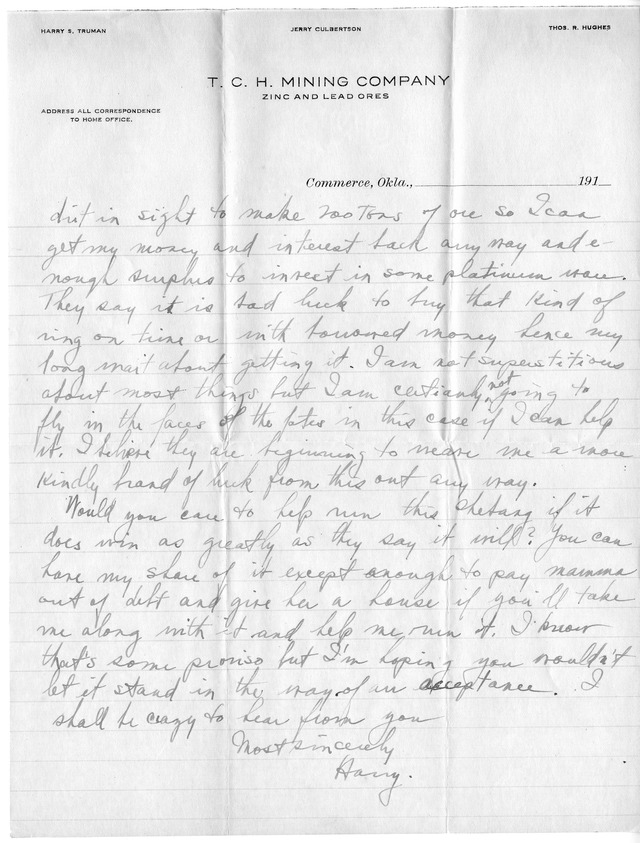 HARRY S. TRUMAN JERRY CULBERTSON THOS. R. HUGHES
T. C. H. MINING COMPANY
ZINC AND LEAD ORES
ADDRESS ALL CORRESPONDENCE
TO HOME OFFICE.
Commerce, Okla., 191
dirt in sight to make 200 Tons of ore so I can
get my money and interest back any way and e-
nough surplus to invest in some platinum ware.
They say it is bad luck to buy that kind of
ring on time or with borrowed money hence my
long wait about getting it. I am not superstitious
about most things but I am certianly not going to
fly in the faces of the fates in this case if I can help
it. I believe they are beginning to weave me a more
kindly brand of luck from this out any way.
Would you care to help run this shebang if it
does win as greatly as they say it will? You can
have my share of it except enough to pay mamma
out of debt and give her a house if you'll take
me along with it and help me run it. I know
that's some proviso but I'm hoping you wouldn't
let it stand in the way of an acceptance. I
shall be crazy to hear from you
Most sincerely
Harry.